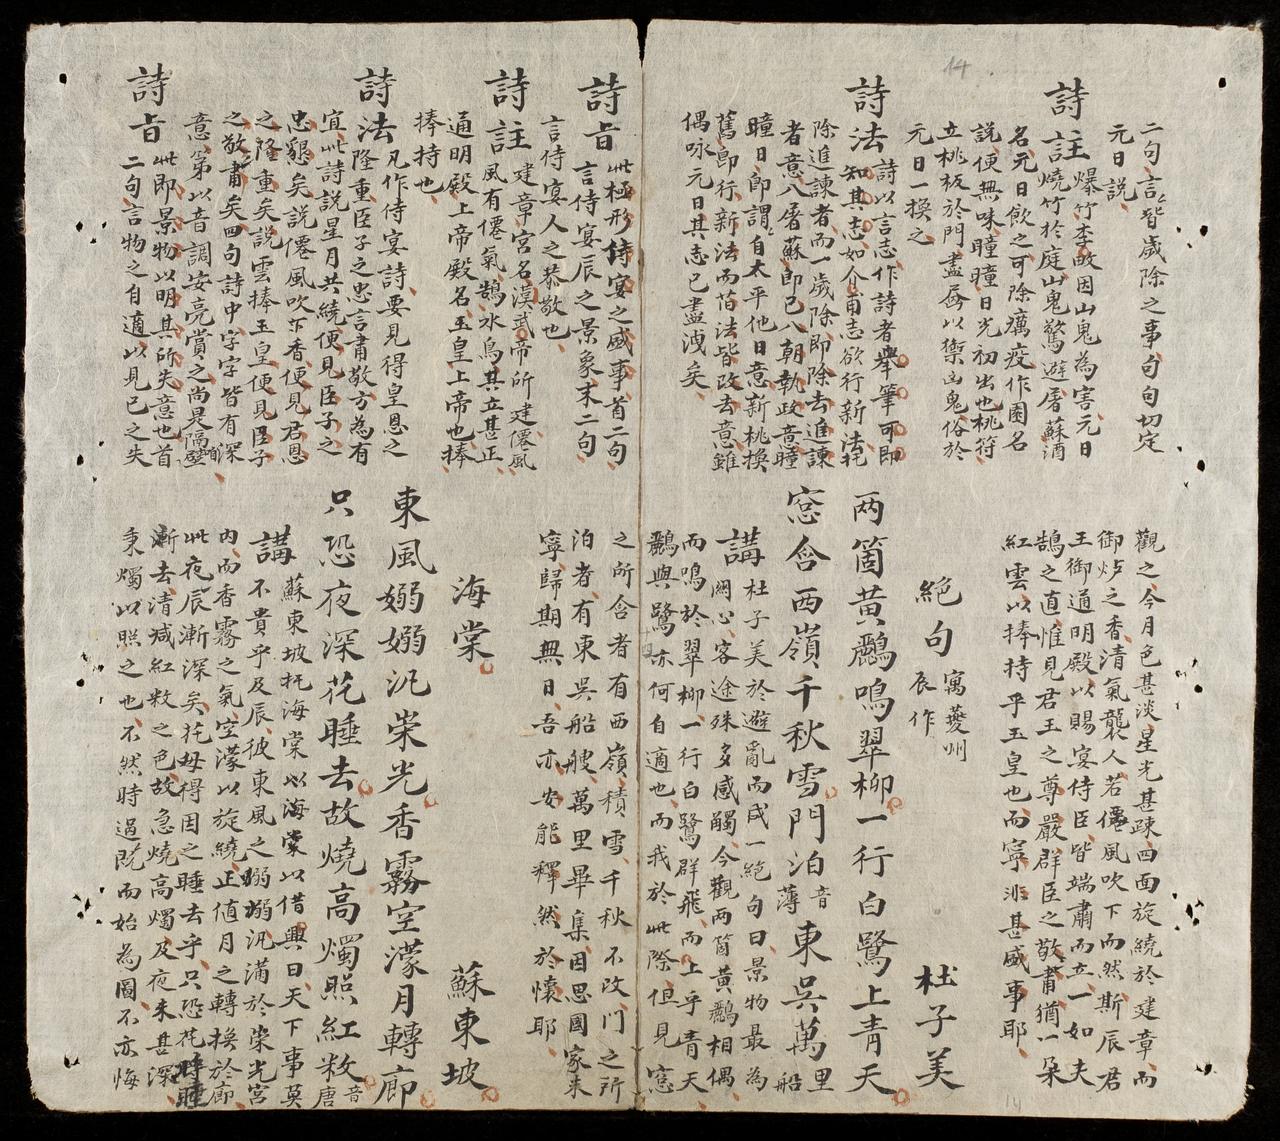 二句言皆歲除之事句句切定
元日説
詩註 爆竹李畋因山鬼為害元日
燒竹於庭山鬼驚避屠蘇酒
名元日飲之可除癘疫作園名
説便無味曈曈日光初出也桃符
立桃板於門盡辱以禦凶鬼俗於
元日一換之
詩法 詩以言志作詩者舉筆可即
知其志如介甫志欲行新法托
除進諫者而一歲除即除去進諫
者意入屠蘇即已入朝執政意曈
曈日即謂自太平他日意新桃換
舊即行新法而苗法皆改去意雖
偶咏元日其志已盡洩矣
詩旨 此極形侍宴之盛事首二句
言侍宴辰之景象末二句
言侍宴人之恭敬也
詩註 建章宮名漢武帝所建僊風
風有僊氣鵠水鳥其立甚正
通明殿上帝殿名玉皇上帝也捧
捧持也
詩法 凡作侍宴詩要見得皇恩之
隆重臣子之忠言肅敬方為有
宜此詩説星月共繞便見臣子之
忠懇矣説僊風吹下香便見君恩
之隆重矣説雲捧玉皇便見臣子
之敬肅矣四句詩中字字皆有深
意第以音調安亮賞之尚是隔壁
詩旨 此即景物以明其所失意也首
二句言物之自適以見己之失
觀之今月色甚淡星光甚疎四面旋繞於建章而
御炉之香清氣襲人若僊風吹下而然斯辰君
王御通明殿以賜宴侍臣皆端肅而立一如夫
鵠之直惟見君王之尊嚴群臣之敬肅猶一朵
紅雲以捧持乎玉皇也而寧非甚盛事耶
絶句 寓夔州辰作 杜子美
两箇黄鸝鳴翠柳一行白鷺上青天
窓含西嶺千秋雪門泊音薄東呉萬里船
講 杜子美於避亂而成一絶句曰景物最為
關心客途殊多感觸今觀两箇黄鸝相偶
而鳴於翠柳一行白鷺群飛而上乎青天
鸝與鷺亦何自適也而我於此際但見窓
之所含者有西嶺積雪千秋不改門之所
泊者有東呉船艘萬里畢集因思國家末
寧歸期無日吾亦安能釋然於懷耶
海棠 蘇東坡
東風嫋嫋汎榮光香霧空濛月轉廊
只恐夜深花睡去故燒高燭照紅粧音唐
講 蘇東坡托海棠以海棠以借興曰天下事莫
不貴乎及辰彼東風之嫋嫋汎滿於榮光宮
内而香霧之氣空濛以旋繞正值月之轉換於廊
此夜辰漸深矣花毋得因之睡去乎只恐花時睡
漸去清减紅粧之色故急燒高燭及夜未甚深
秉燭以照之也不然時過既而始為圖不亦悔